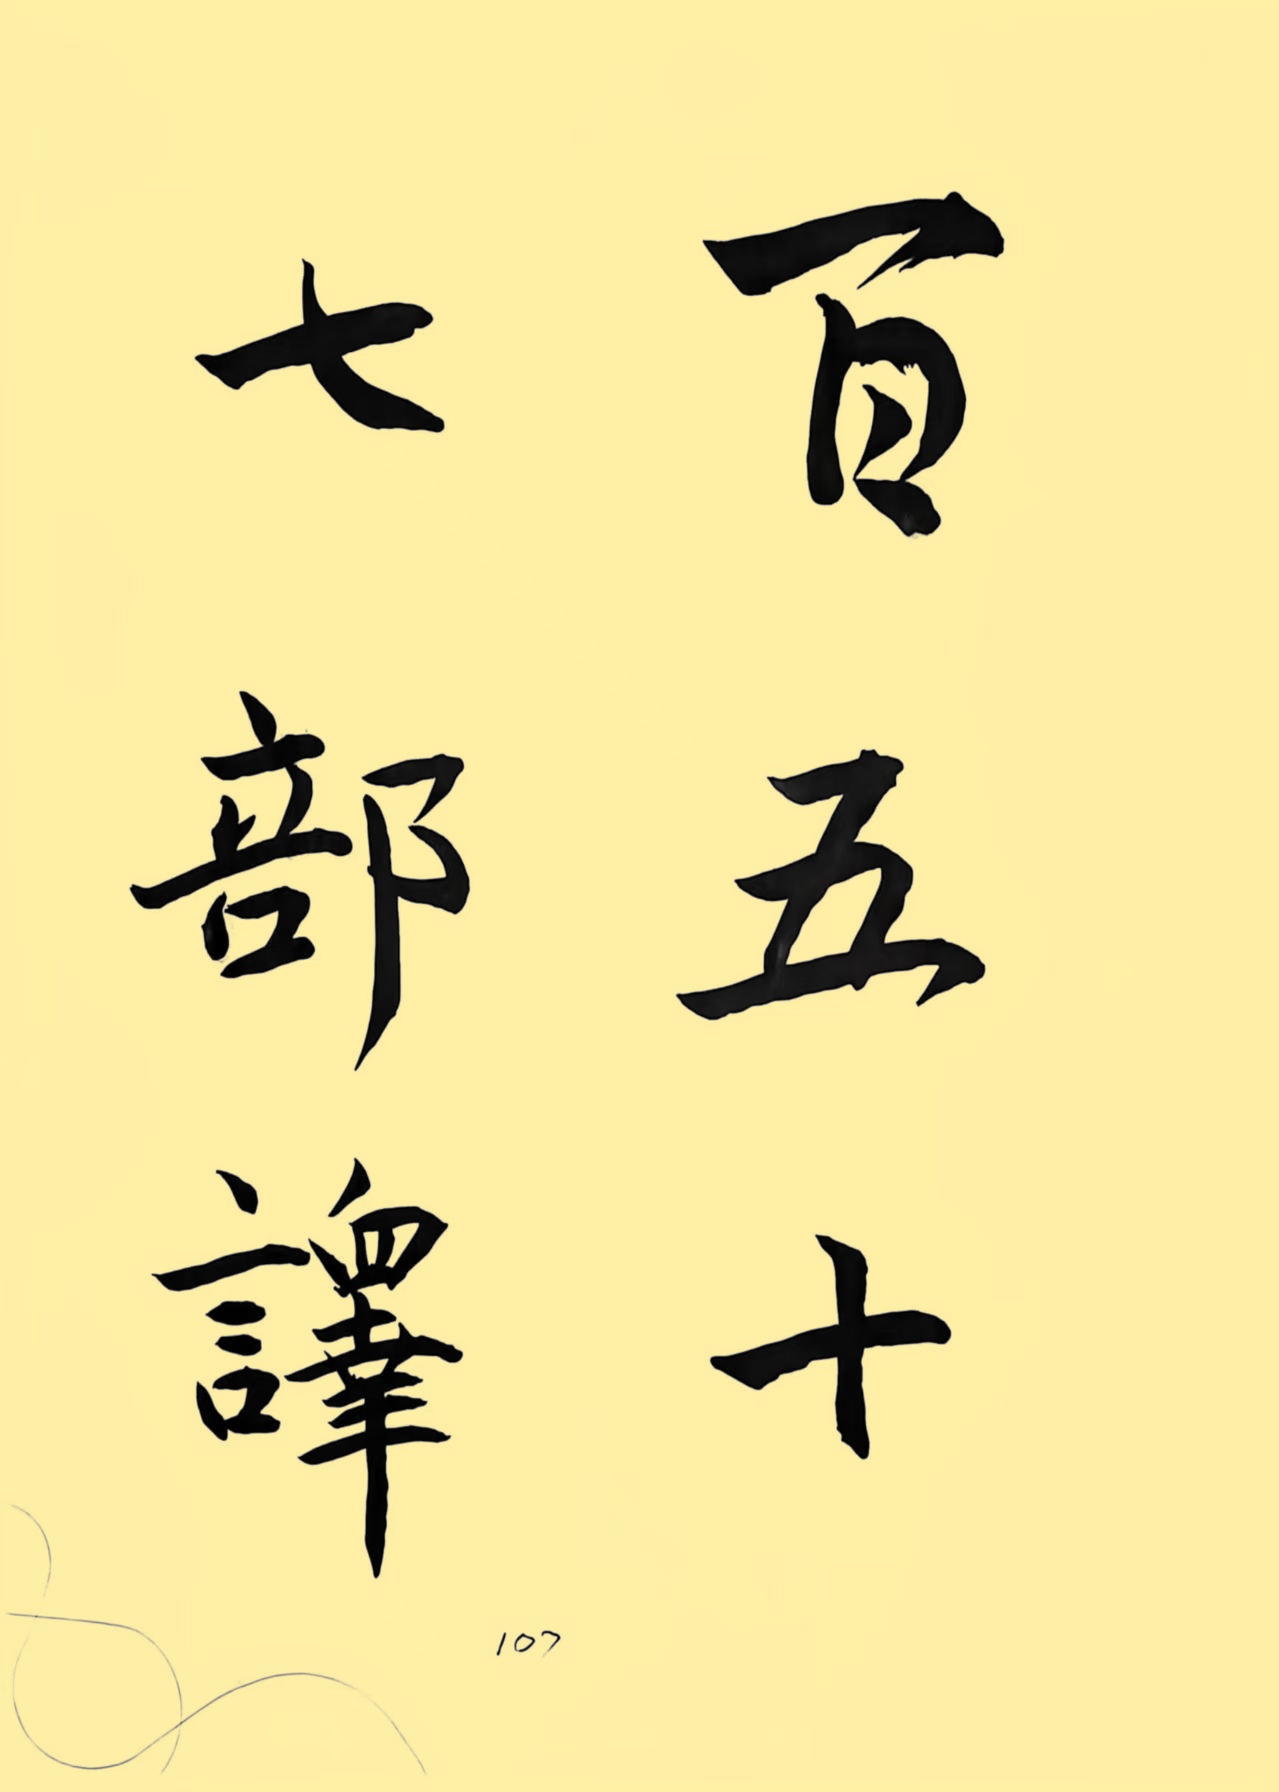 百五十
七部譯
107